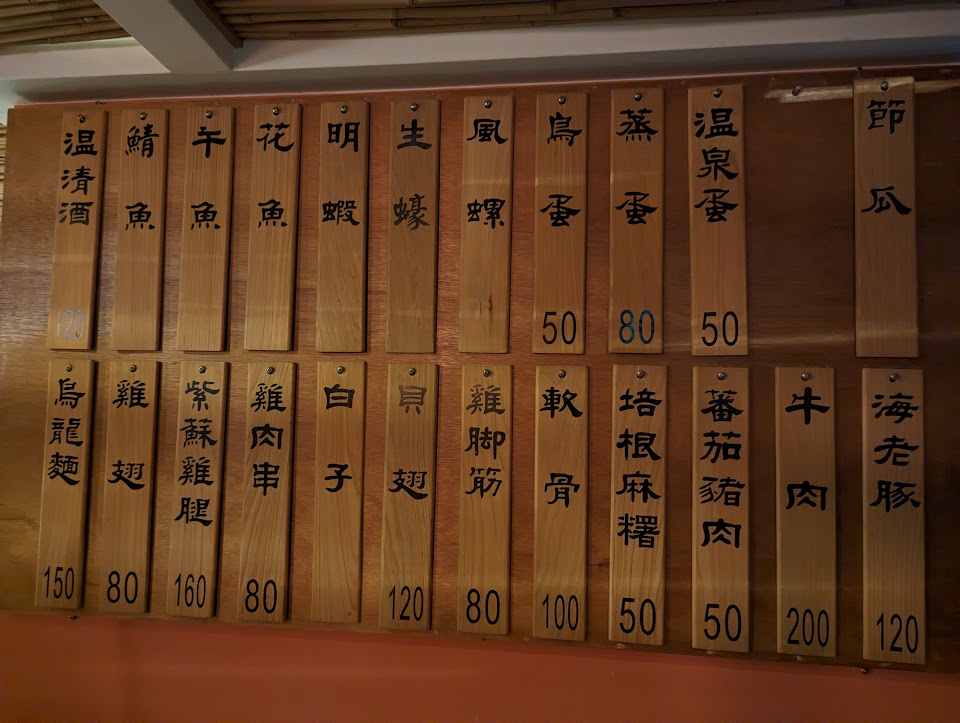 節瓜
温泉蛋
50
蒸蛋
80
鳥蛋
50
風螺
生蠔
明蝦
花魚
午魚
鯖魚
温清酒
120
海老豚
120
牛肉
200
蕃茄豬肉
50
培根麻糬
50
軟骨
100
雞脚筋
80
貝翅
120
白子
雞肉串
80
紫蘇雞腿
160
雞翅
80
烏龍麵
150